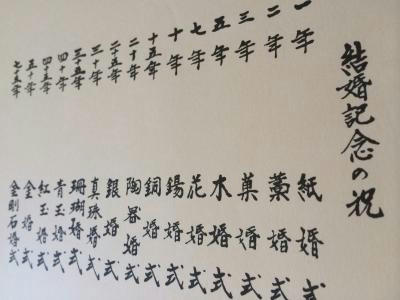 結婚記念の祝
一年 紙婚式
二年 藁婚式
三年 菓婚式
五年 木婚式
七年 花婚式
十年 錫婚式
十五年 銅婚式
二十年 陶器婚式
二十五年 銀婚式
三十年 真珠婚式
三十五年 珊瑚婚式
四十年 青玉婚式
四十五年 紅玉婚式
五十年 金婚式
七十五年 金剛石婚式